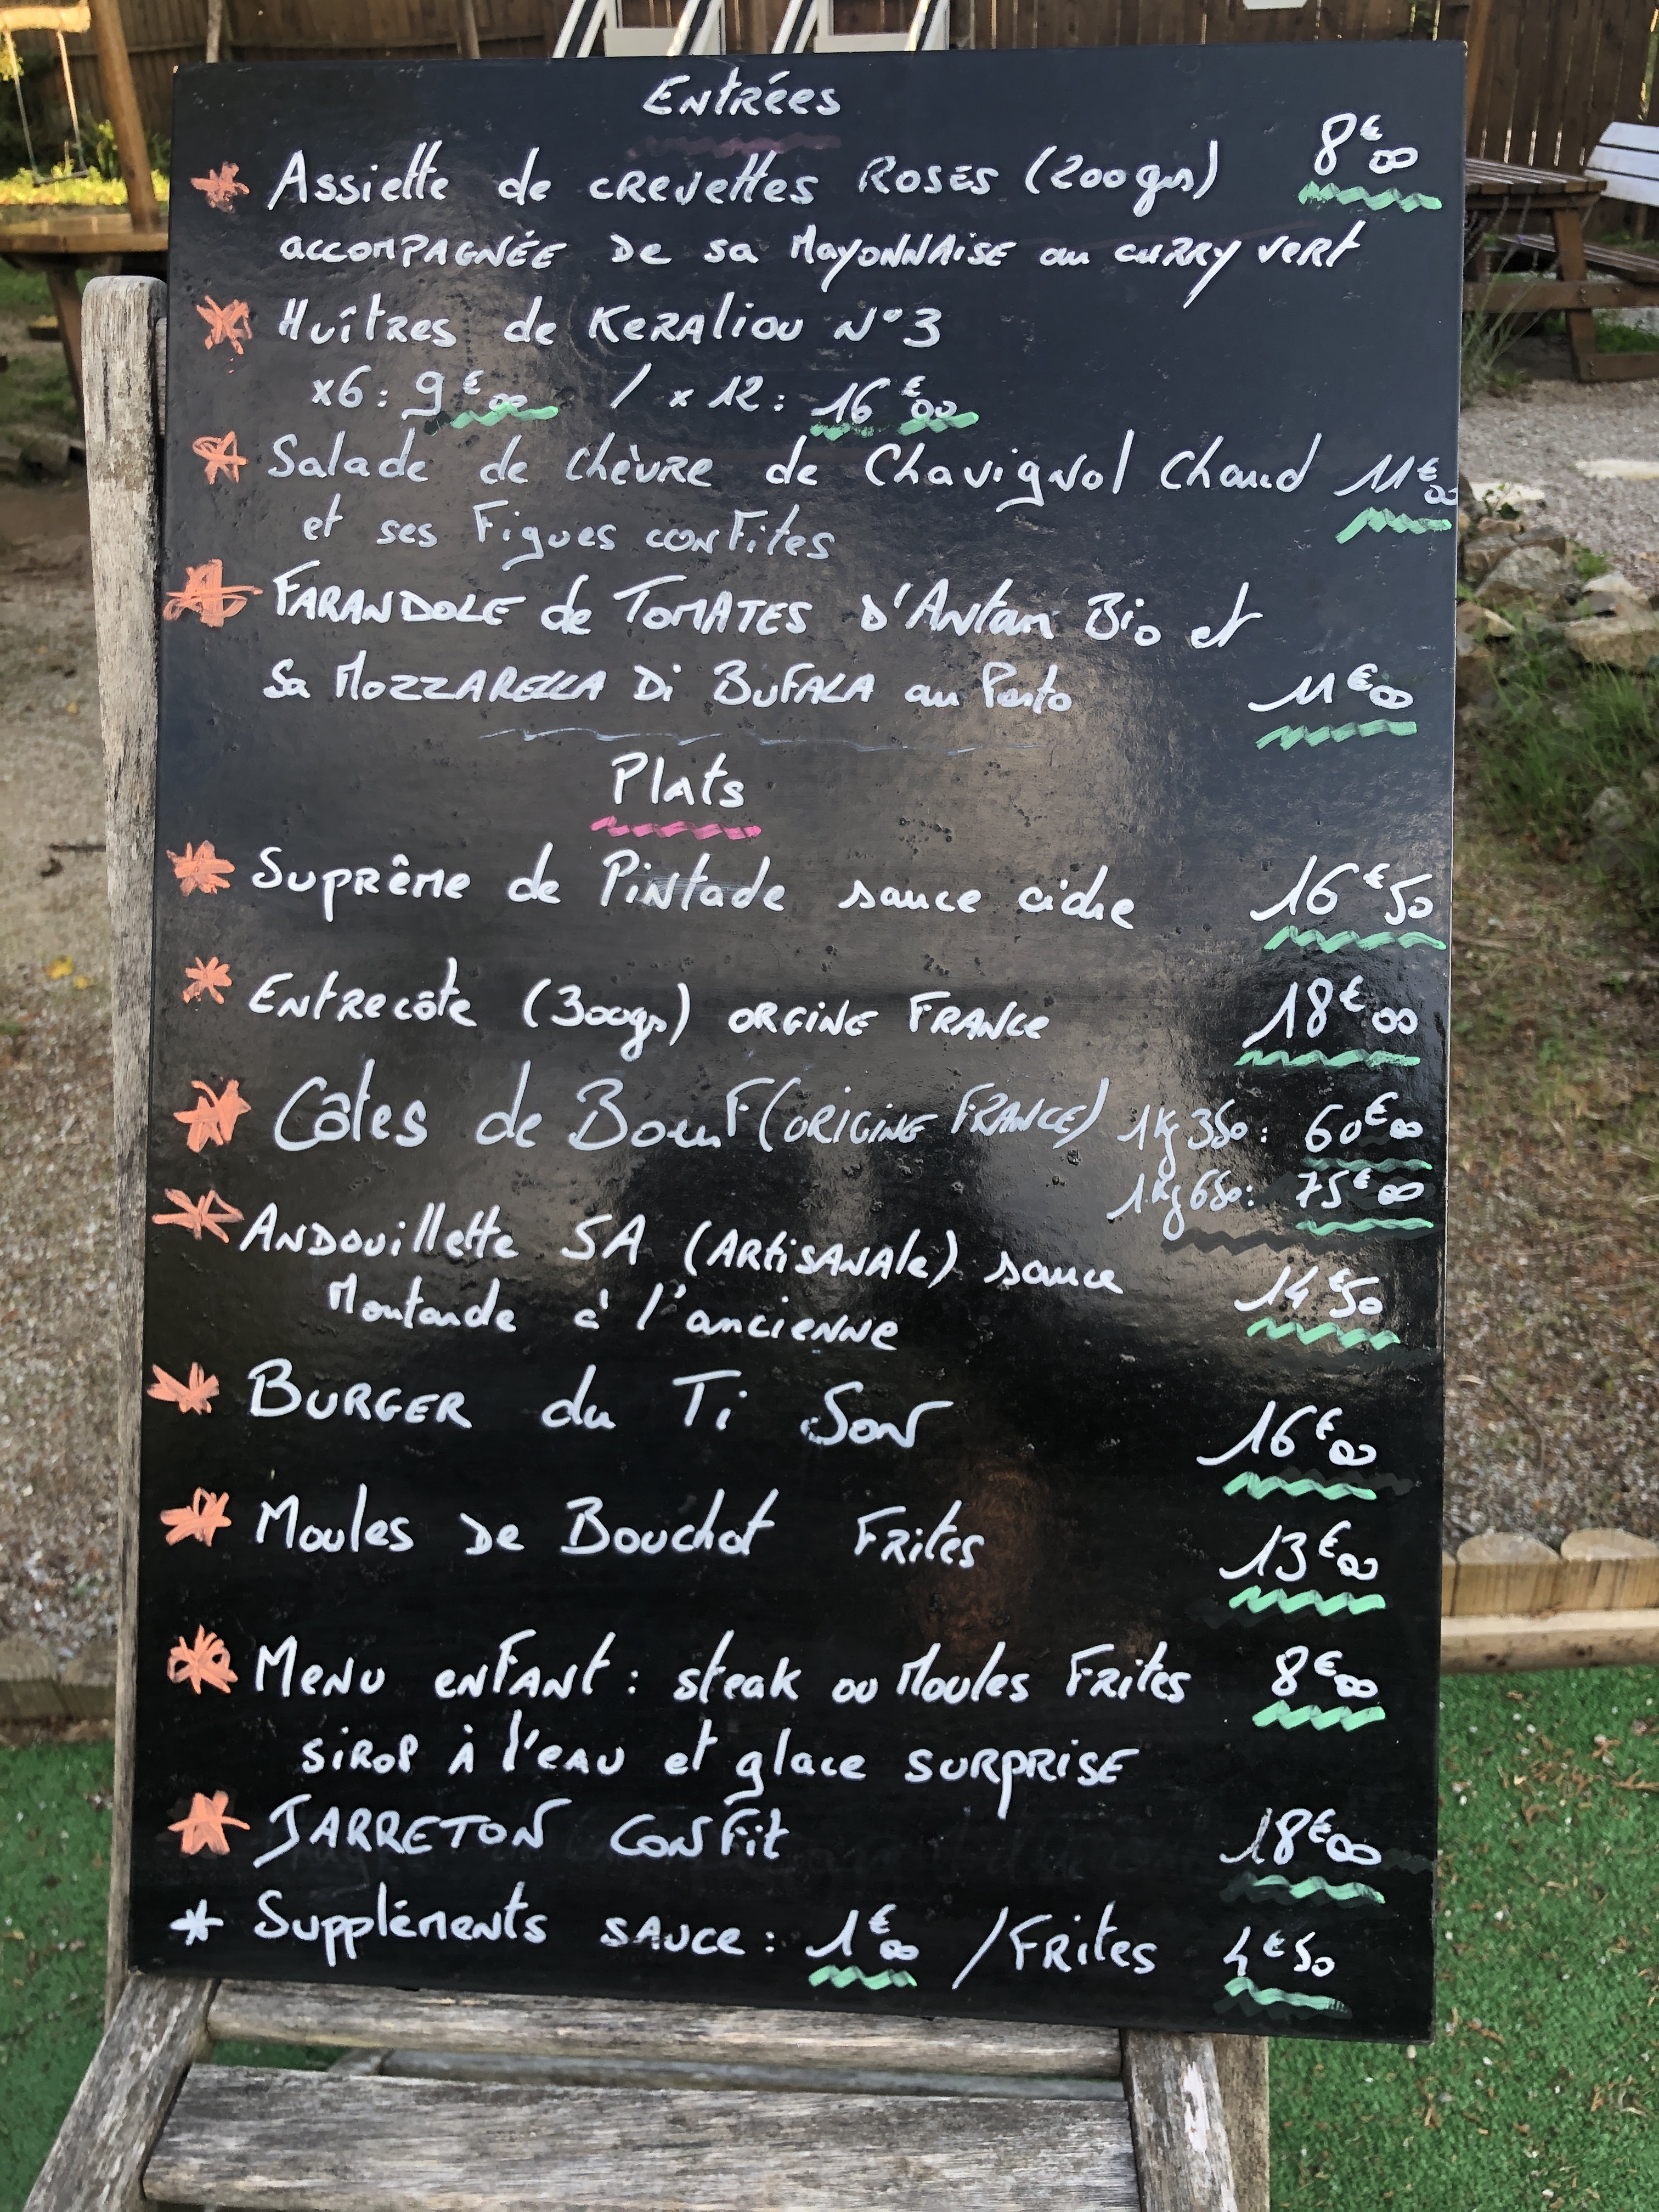 Entrées
Assiette de crevettes Roses (200grs) 8€00
accompagnée de sa Mayonnaise au curry vert
Huîtres de Keraliou N°3
x6 : 9€00 / x 12 : 16€00
Salade de chèvre de Chavignol Chaud 11€00
et ses Figues confites
Farandole de Tomates d'Antan Bio et
sa Mozzarella Di Bufala au Pesto 11€00
Plats
Suprême de Pintade sauce cidre 16€50
Entrecôte (300grs) orgine France 18€00
Côtes de Boeuf (origine France) 1kg350 : 60€00
1kg650 : 75€00
Andouillette 5A (Artisanale) sauce
Moutarde à l'ancienne 14€50
Burger du Ti Son 16€00
Moules de Bouchot Frites 13€00
Menu enfant : steak ou Moules Frites 8€00
sirop à l'eau et glace surprise
Jarreton Confit 18€00
* Suppléments sauce : 1€00 / Frites 4€50